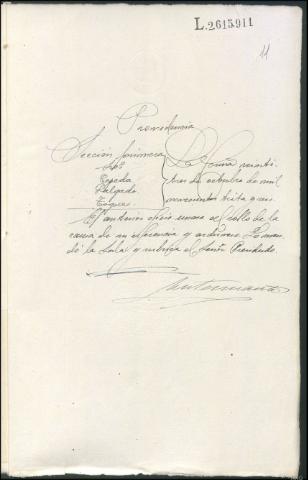 L.2615.911
11
Providencia
Sección primera
Sres
Cepeda
Salgado
La Coruña veinti
tres de octubre de mil
novecientos treinta y seis
El anterior oficio únase al rollo de la
causa de su referencia y archívese. Lo man-
dó la Sala y rubrica el Señor Presidente.